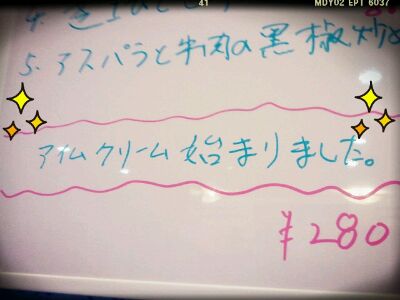 41 MDY02 EPT 6037
5. アスパラと牛肉の黒椒炒め
アイムクリーム始まりました。
¥280